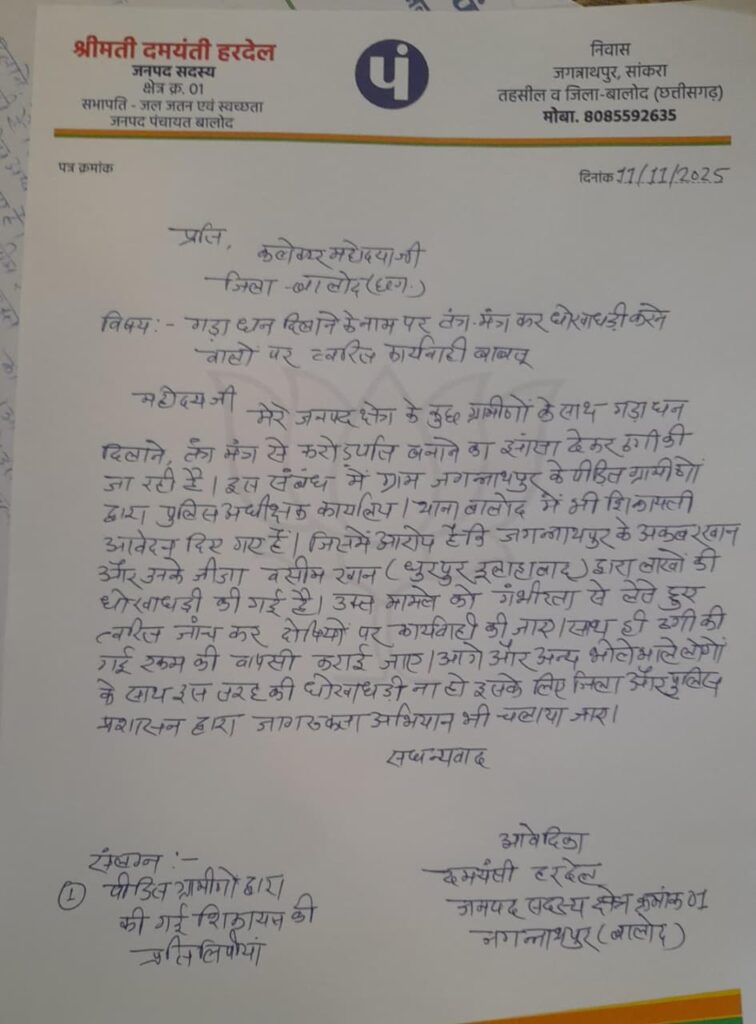 श्रीमती दमयंती हरदेल
जनपद सदस्य
क्षेत्र क्र. 01
सभापति - जल जतन एवं स्वच्छता
जनपद पंचायत बालोद
पं
निवास
जगन्नाथपुर, सांकरा
तहसील व जिला-बालोद (छत्तीसगढ़)
मोबा. 8085592635
पत्र क्रमांक
दिनांक 11/11/2025
प्रति,
कलेक्टर महोदया जी
जिला - बालोद (छग.)
विषय:- गड़ा धन दिलाने के नाम पर तंत्र-मंत्र कर धोखाधड़ी करने
वालों पर त्वरित कार्यवाही बाबत्
महोदय जी
मेरे जनपद क्षेत्र के कुछ ग्रामीणों के साथ गड़ा धन
दिलाने, तंत्र मंत्र से करोड़पति बनाने का झांसा देकर ठगी की
जा रही है। इस संबंध में ग्राम जगन्नाथपुर के पीड़ित ग्रामीणों
द्वारा पुलिस अधीक्षक कार्यालय। थाना बालोद में भी शिकायती
आवेदन दिए गए हैं। जिसमें आरोप है कि जगन्नाथपुर के अकबर खान
और उनके जीजा वसीम खान (धुरपुर इलाहाबाद) द्वारा लाखों की
धोखाधड़ी की गई है। उक्त मामले को गंभीरता से लेते हुए
त्वरित जांच कर दोषियों पर कार्यवाही की जाए। साथ ही ठगी की
गई रकम की वापसी कराई जाए। आगे और अन्य भोले भाले लोगों
के साथ इस तरह की धोखाधड़ी ना हो इसके लिए जिला और पुलिस
प्रशासन द्वारा जागरूकता अभियान भी चलाया जाए।
सधन्यवाद
संलग्न :-
① पीड़ित ग्रामीणों द्वारा
की गई शिकायत की
प्रतिलिपियां
आवेदिका
दमयंती हरदेल
जनपद सदस्य क्षेत्र क्रमांक 01
जगन्नाथपुर (बालोद)